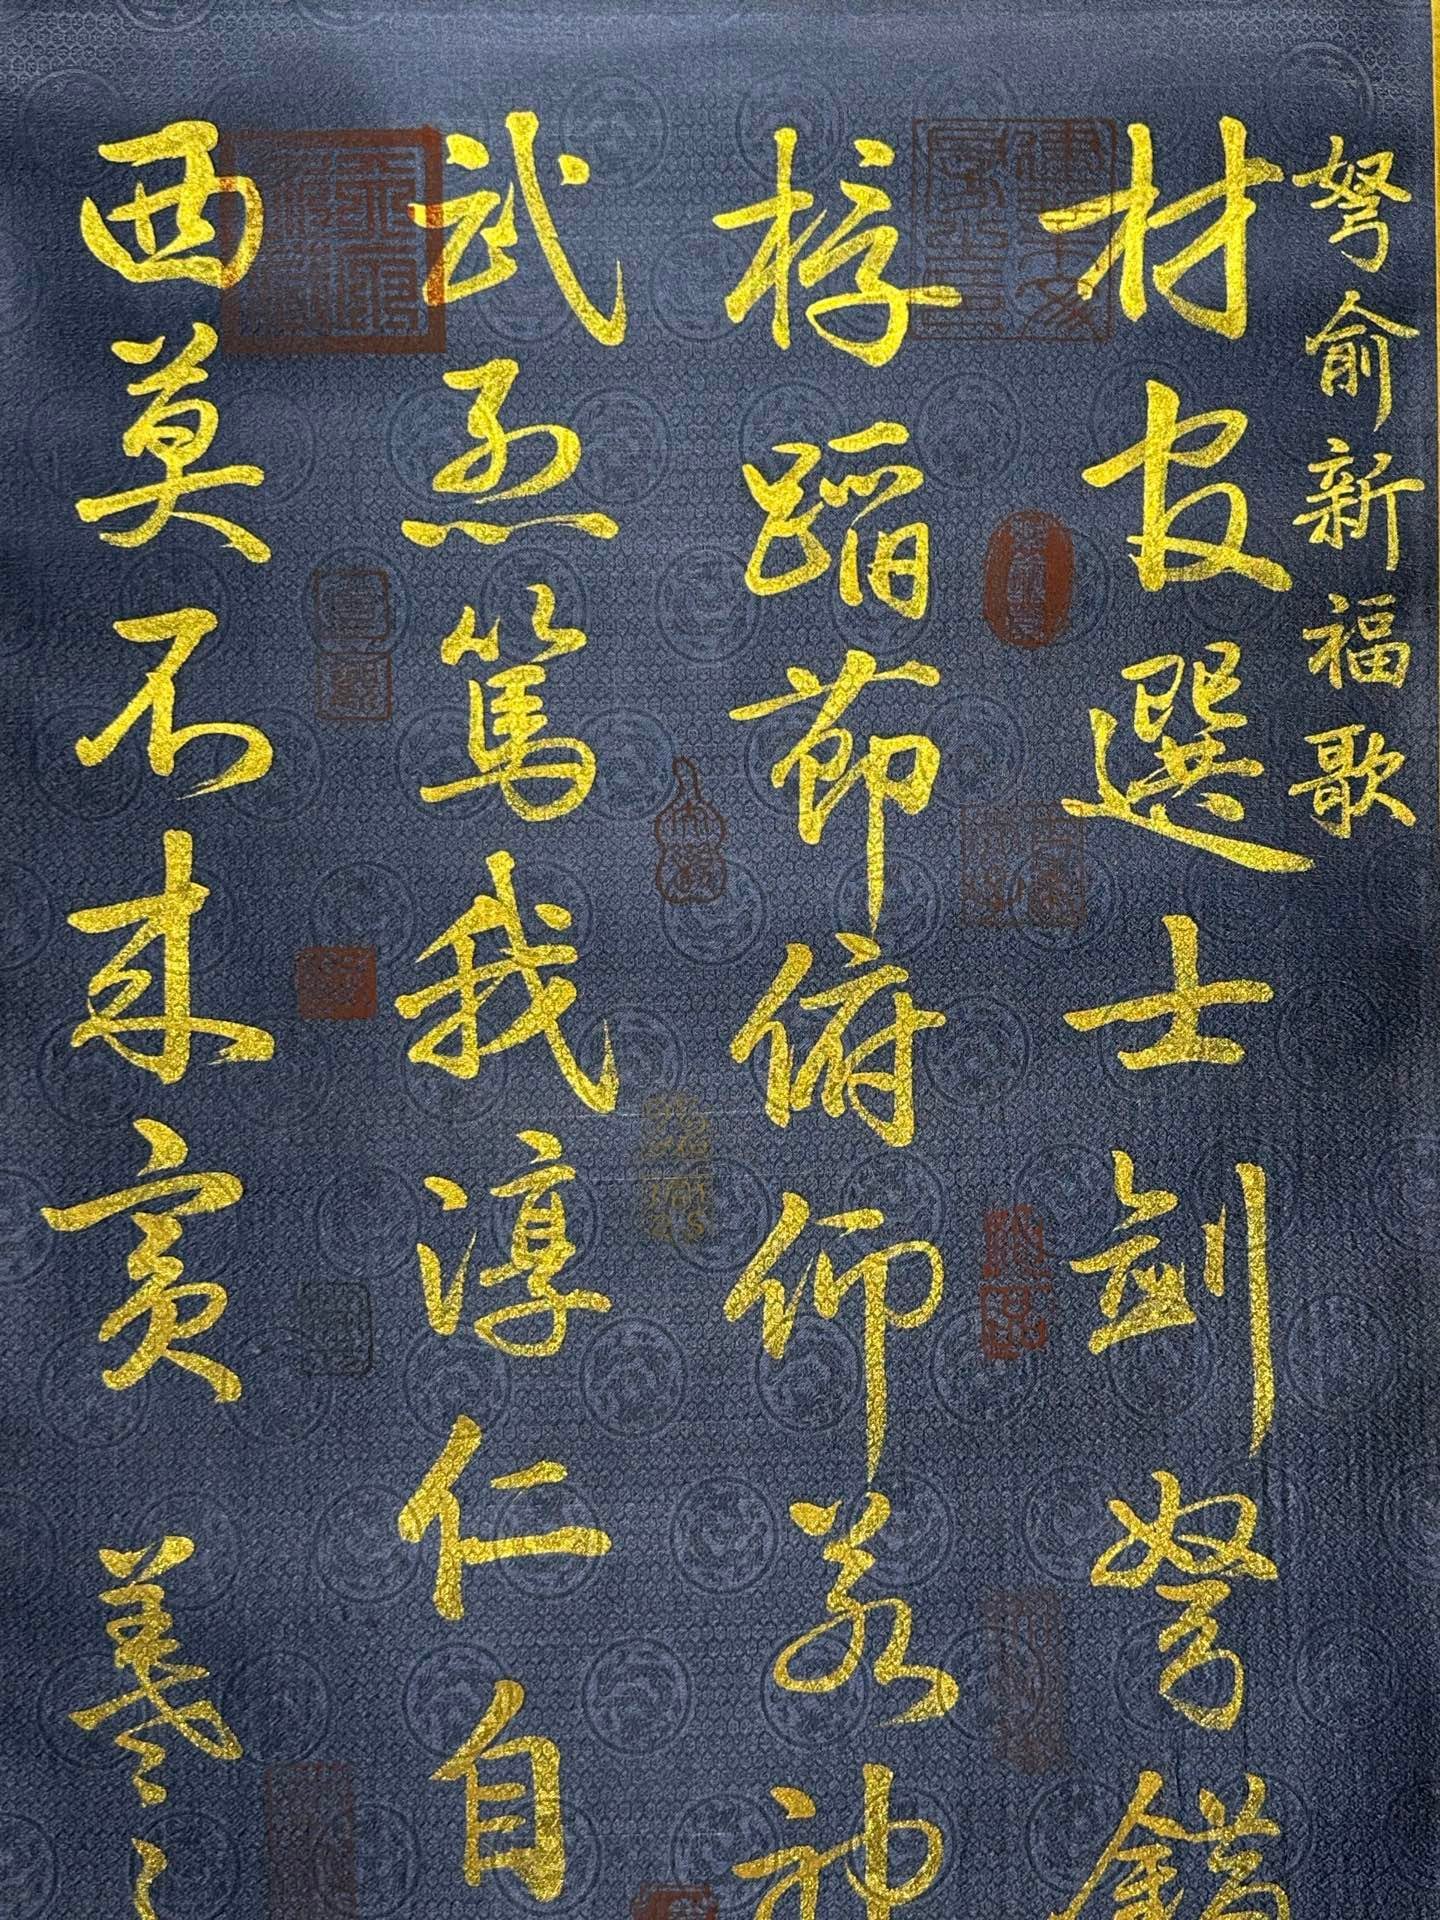 弩俞新福歌
材官選士劍弩錯
桴蹈節俯仰若神
武烈篤我淳仁自
西莫不来賓
羲之